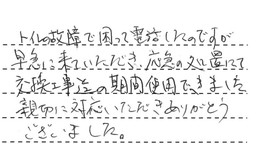 トイレの故障で困って電話したのですが
早急に来ていただき、応急の処置にて
交換工事迄の期間使用できました
親切に対応いただきありがとう
ございました。